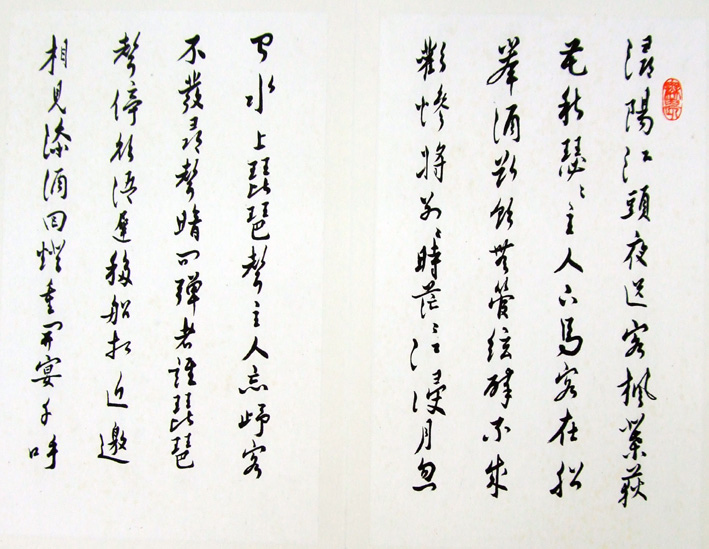 潯陽江頭夜送客楓葉荻
花秋瑟〻主人下馬客在船
舉酒欲飲無管絃醉不成
歡慘將别〻時茫〻江浸月忽
聞水上琵琶聲主人忘歸客
不發尋聲暗問彈者誰琵琶
聲停欲語遲移船相近邀
相見添酒回燈重開宴千呼